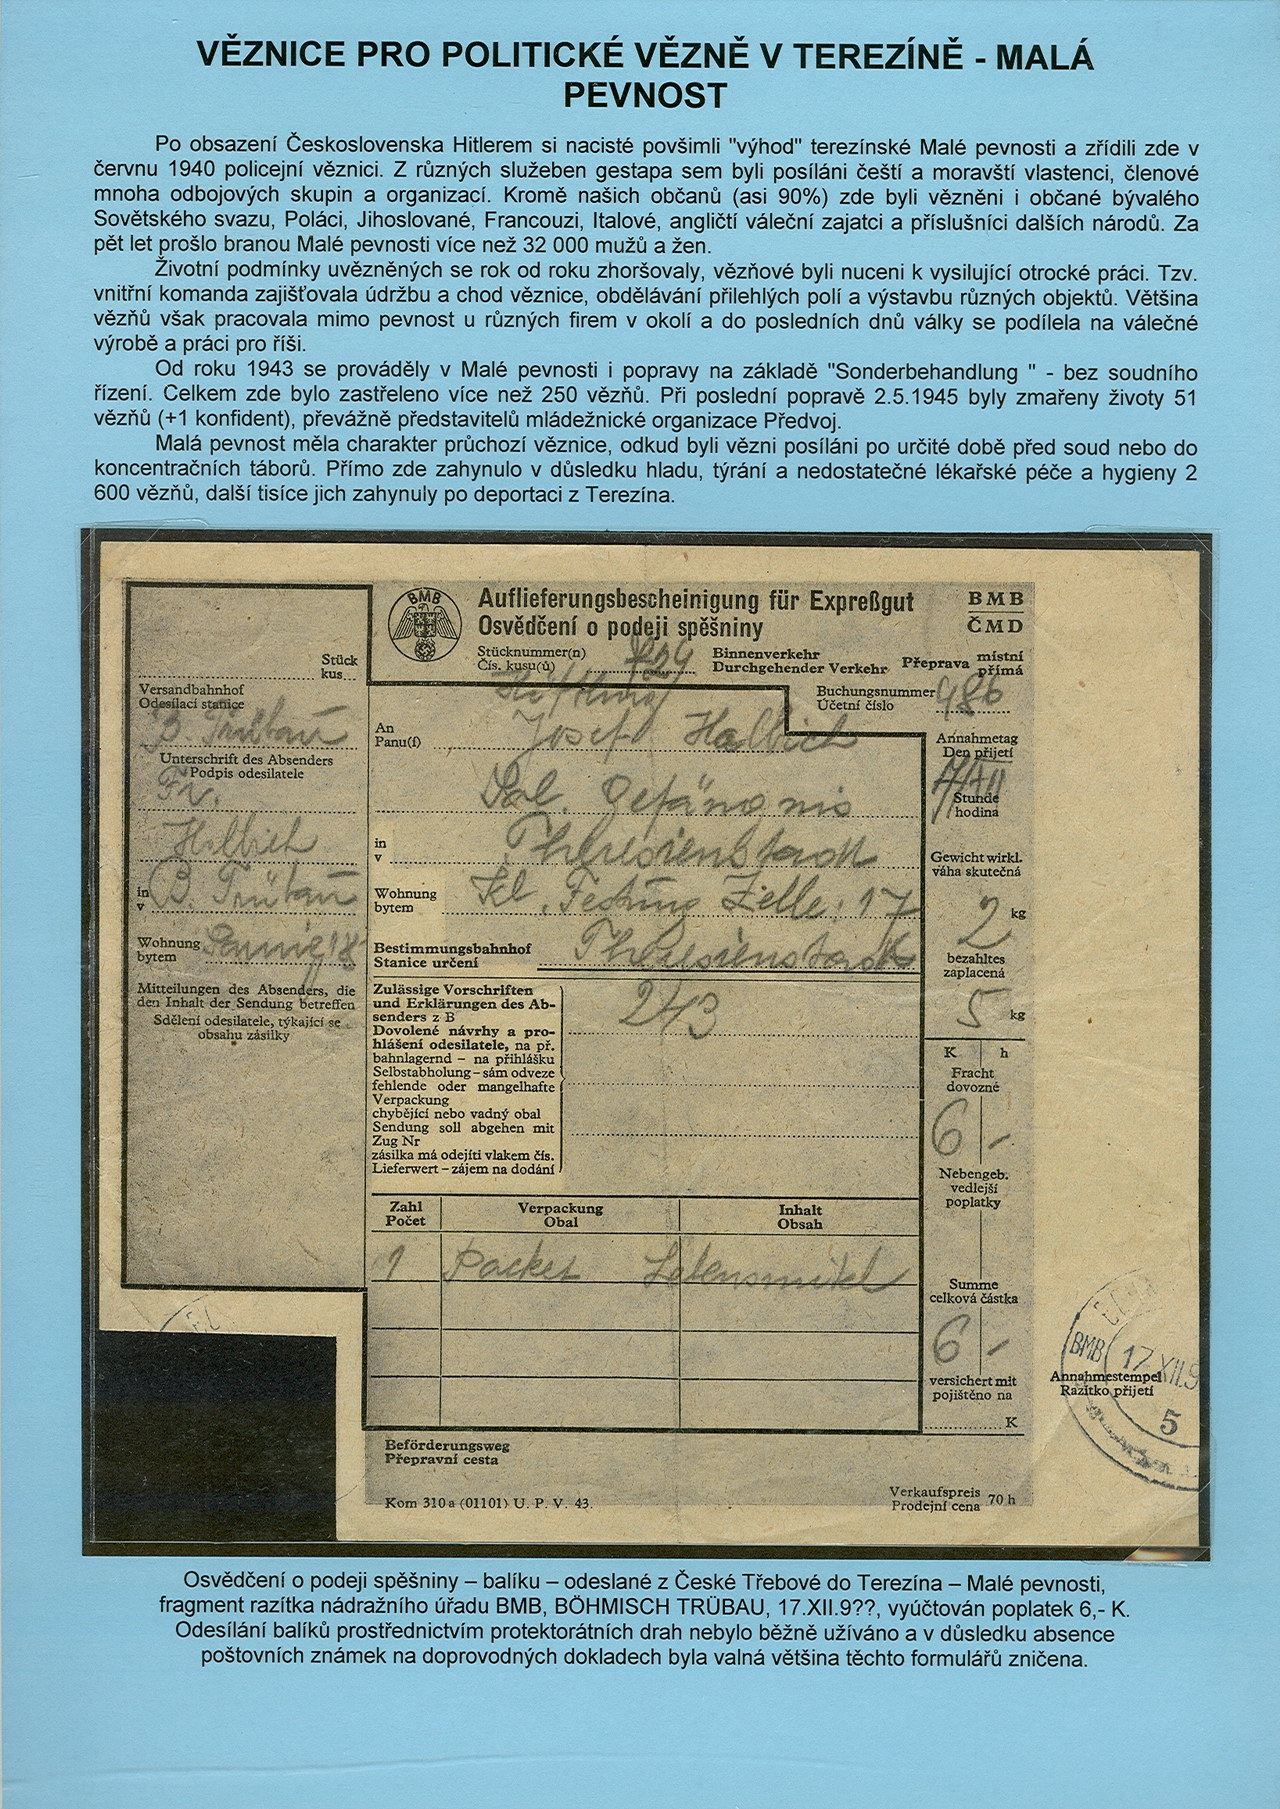 VĚZNICE PRO POLITICKÉ VĚZNĚ V TEREZÍNĚ - MALÁ
PEVNOST
Po obsazení Československa Hitlerem si nacisté povšimli "výhod" terezínské Malé pevnosti a zřídili zde v
červnu 1940 policejní věznici. Z různých služeben gestapa sem byli posíláni čeští a moravští vlastenci, členové
mnoha odbojových skupin a organizací. Kromě našich občanů (asi 90%) zde byli vězněni i občané bývalého
Sovětského svazu, Poláci, Jihoslované, Francouzi, Italové, angličtí váleční zajatci a příslušníci dalších národů. Za
pět let prošlo branou Malé pevnosti více než 32 000 mužů a žen.
Životní podmínky uvězněných se rok od roku zhoršovaly, vězňové byli nuceni k vysilující otrocké práci. Tzv.
vnitřní komanda zajišťovala údržbu a chod věznice, obdělávání přilehlých polí a výstavbu různých objektů. Většina
vězňů však pracovala mimo pevnost u různých firem v okolí a do posledních dnů války se podílela na válečné
výrobě a práci pro říši.
Od roku 1943 se prováděly v Malé pevnosti i popravy na základě "Sonderbehandlung " - bez soudního
řízení. Celkem zde bylo zastřeleno více než 250 vězňů. Při poslední popravě 2.5.1945 byly zmařeny životy 51
vězňů (+1 konfident), převážně představitelů mládežnické organizace Předvoj.
Malá pevnost měla charakter průchozí věznice, odkud byli vězni posíláni po určité době před soud nebo do
koncentračních táborů. Přímo zde zahynulo v důsledku hladu, týrání a nedostatečné lékařské péče a hygieny 2
600 vězňů, další tisíce jich zahynuly po deportaci z Terezína.
BMB
Auflieferungsbescheinigung für Expreßgut
Osvědčení o podeji spěšniny
BMB
ČMD
Stücknummer(n)
Čís. kusu(ů)
Binnenverkehr
Durchgehender Verkehr
Přeprava místní
přímá
Stück
kus
Buchungsnummer
Účetní číslo
986
Versandbahnhof
Odesílací stanice
B. Trübau
Unterschrift des Absenders
Podpis odesilatele
Fr.
Halbich
in
v
B. Trübau
Wohnung
bytem
Mitteilungen des Absenders, die
den Inhalt der Sendung betreffen
Sdělení odesilatele, týkající se
obsahu zásilky
An
Panu(í)
Josef Halbich
Pol. Gefängnis
in
v
Theresienstadt
Wohnung
bytem
Kl. Festung Zelle. 17
Bestimmungsbahnhof
Stanice určení
Theresienstadt
Zulässige Vorschriften
und Erklärungen des Ab-
senders z B
Dovolené návrhy a pro-
hlášení odesilatele, na př.
bahnlagernd – na přihlášku
Selbstabholung – sám odveze
fehlende oder mangelhafte
Verpackung
chybějící nebo vadný obal
Sendung soll abgehen mit
Zug Nr
zásilka má odejíti vlakem čís.
Lieferwert – zájem na dodání
243
Annahmetag
Den přijetí
Stunde
hodina
Gewicht wirkl.
váha skutečná
2 kg
bezahltes
zaplacená
5 kg
K h
Fracht
dovozné
6 -
Nebengeb.
vedlejší
poplatky
Summe
celková částka
6 -
versichert mit
pojištěno na
K
Zahl
Počet
Verpackung
Obal
Inhalt
Obsah
1 Packet Lebensmittel
BMB
17.XII.9
5
Annahmestempel
Razítko přijetí
Beförderungsweg
Přepravní cesta
Kom 310a (01101) U. P. V. 43.
Verkaufspreis
Prodejní cena 70 h
Osvědčení o podeji spěšniny – balíku – odeslané z České Třebové do Terezína – Malé pevnosti,
fragment razítka nádražního úřadu BMB, BÖHMISCH TRÜBAU, 17.XII.9??, vyúčtován poplatek 6,- K.
Odesílání balíků prostřednictvím protektorátních drah nebylo běžně užíváno a v důsledku absence
poštovních známek na doprovodných dokladech byla valná většina těchto formulářů zničena.